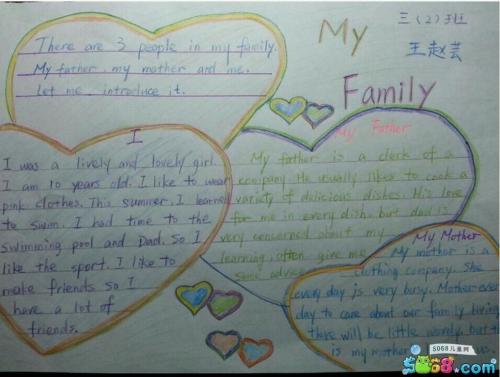 There are 3 people in my family.
My father, my mother and me.
Let me introduce it.
My
Family
三（2）班
王赵芸
I
I was a lively and lovely girl.
I am 10 years old. I like to wear
pink clothes. This summer, I learned
to swim. I had time to the
swimming pool and Dad. So I
like the sport. I like to
make friends so I
have a lot of
friends.
My Father
My father is a clerk of a
company. He usually likes to cook a
variety of delicious dishes. His love
for me in every dish. but dad is
very concerned about my
learning, often give me
some advice
My Mother
My mother is a
clothing company. She
every day is very busy. Mother every
day to care about our family living
there will be little wordy, but
is my mother us.
5068儿童网
5068.com